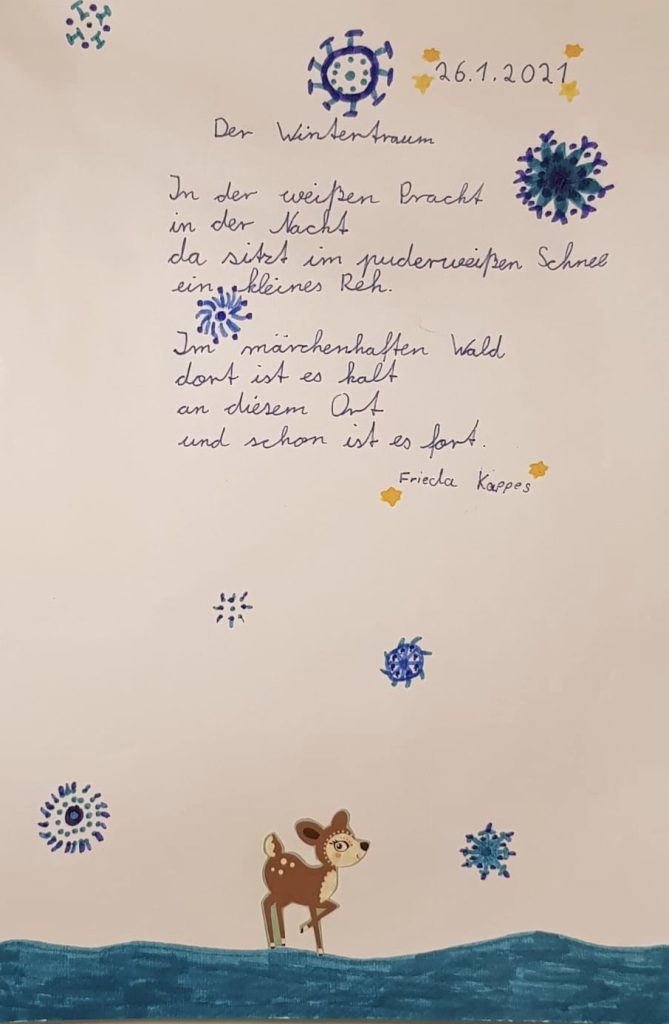 26.1.2021
Der Wintertraum
In der weißen Pracht
in der Nacht
da sitzt im puderweißen Schnee
ein kleines Reh.
Im märchenhaften Wald
dort ist es kalt
an diesem Ort
und schon ist es fort.
Frieda Kappes